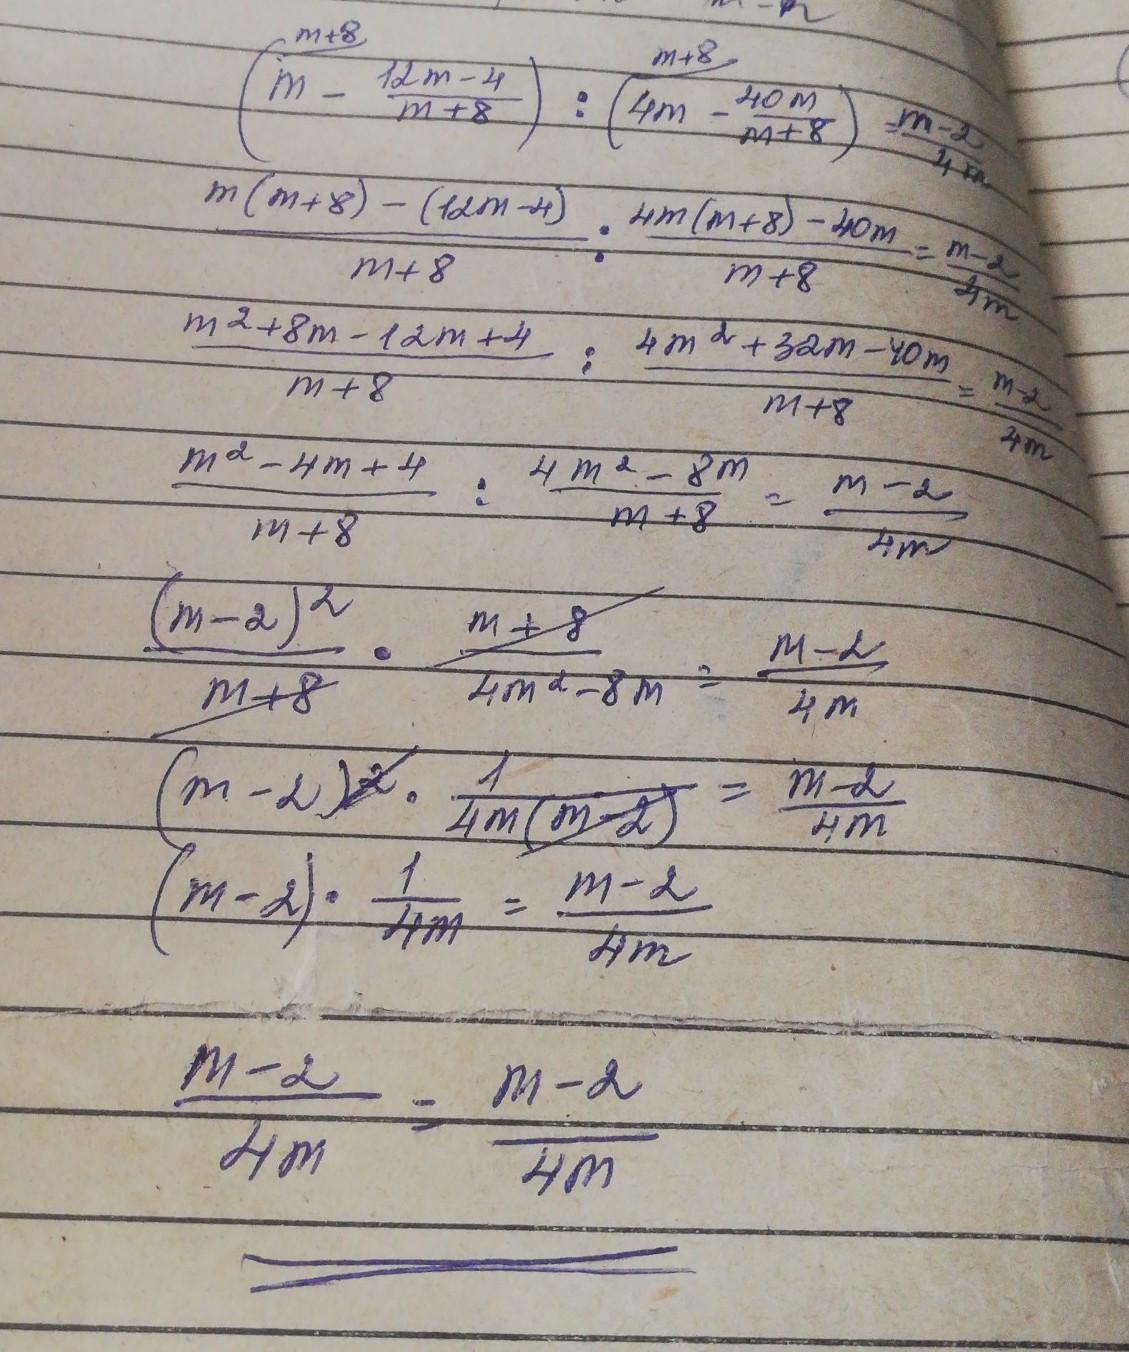 m-n
(m^{m+8} - \frac{12m-4}{m+8}) : (4m^{m+8} - \frac{40m}{m+8}) = \frac{m-2}{4m}
\frac{m(m+8)-(12m-4)}{m+8} : \frac{4m(m+8)-40m}{m+8} = \frac{m-2}{4m}
\frac{m^2+8m-12m+4}{m+8} : \frac{4m^2+32m-40m}{m+8} = \frac{m-2}{4m}
\frac{m^2-4m+4}{m+8} : \frac{4m^2-8m}{m+8} = \frac{m-2}{4m}
\frac{(m-2)^2}{m+8} · \frac{m+8}{4m^2-8m} = \frac{m-2}{4m}
(m-2)^2 · \frac{1}{4m(m-2)} = \frac{m-2}{4m}
(m-2) · \frac{1}{4m} = \frac{m-2}{4m}
\frac{m-2}{4m} = \frac{m-2}{4m}